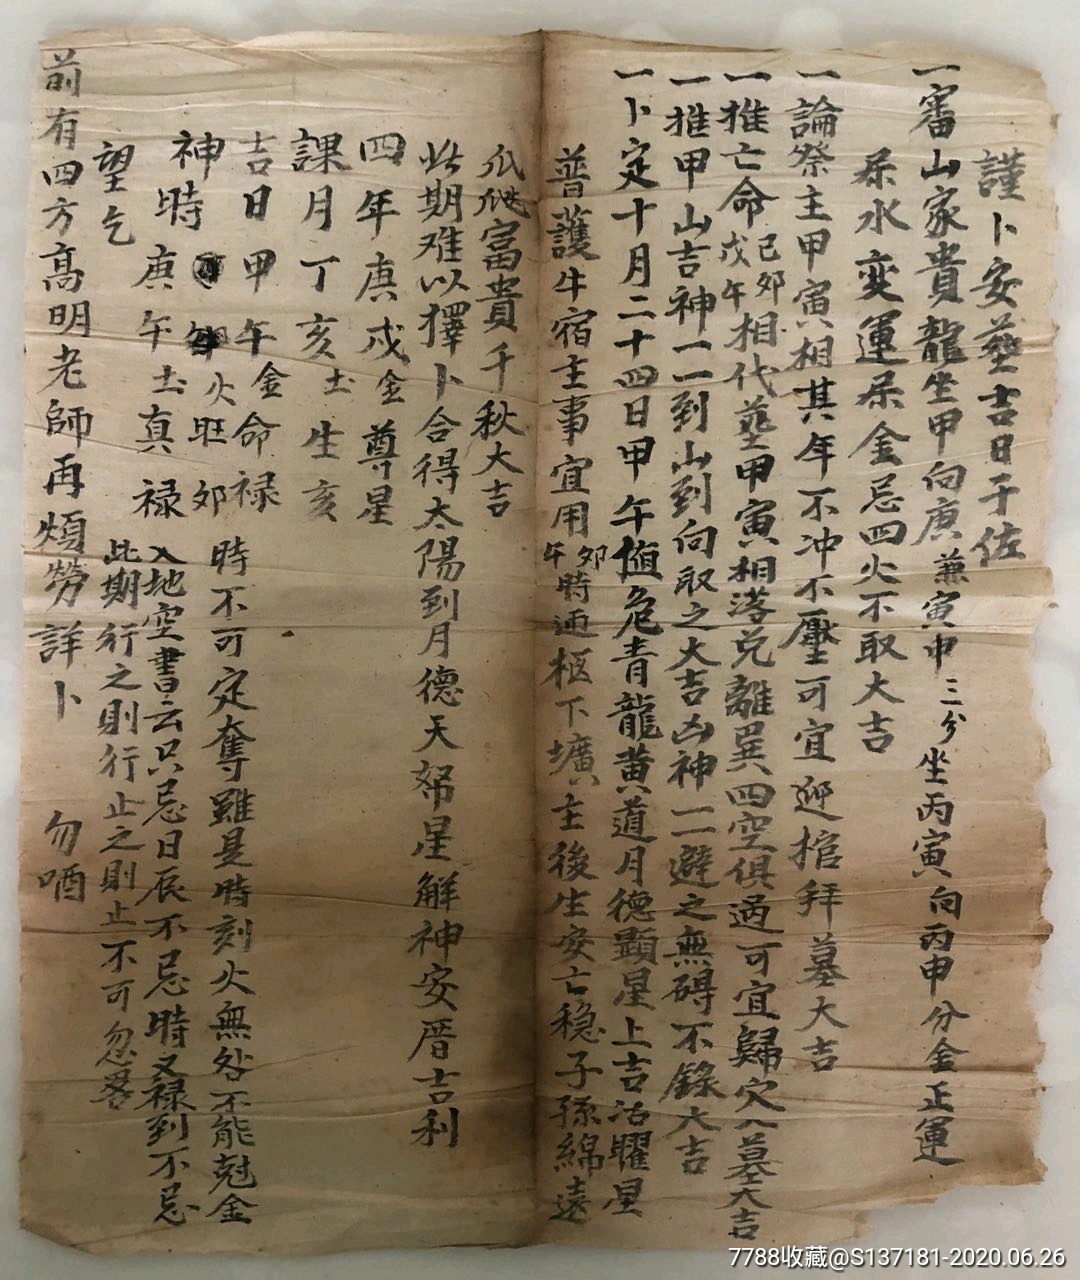 謹卜安葬吉日于佐
一審山家貴龍坐甲向庚兼寅申三分坐丙寅向丙申分金正運
屬水变運屬金忌四火不取大吉
一論祭主甲寅相其年不冲不壓可宜迎棺拜墓大吉
一推亡命己夘戊午相代塟甲寅相落兑離巽四空俱過可宜歸穴入墓大吉
一推甲山吉神一一到山到向取之大吉凶神一一避之無碍不錄大吉
一卜定十月二十四日甲午值危青龍黄道月德顕星上吉活曜星
普護牛宿主事宜用夘午時迊柩下壙主後生安亡穏子孫綿遠
瓜瓞富貴千秋大吉
此期难以擇卜合得太陽到月德天帑星解神安厝吉利
四年庚戍金尊星
課月丁亥土生亥
吉日甲午金命禄
神時夘火旺夘
時庚午土真禄
時不可定奪雖是時刻火無咎不能尅金
入地空書云只忌日辰不忌時又禄到不忌
此期行之則行止之則止不可忽畧
望乞
前有四方高明老師再煩勞詳卜 勿哂
7788收藏@S137181-2020.06.26